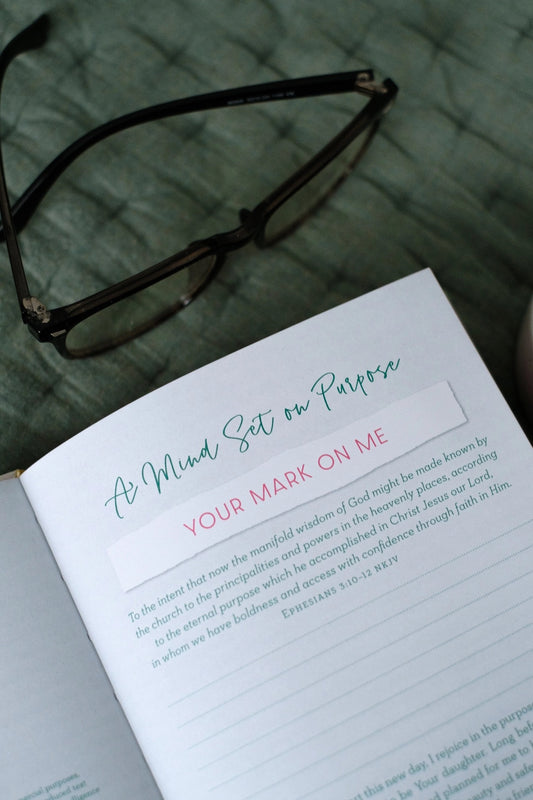 A Mind Set on Purpose
YOUR MARK ON ME
To the intent that now the manifold wisdom of God might be made known by
the church to the principalities and powers in the heavenly places, according
to the eternal purpose which he accomplished in Christ Jesus our Lord,
in whom we have boldness and access with confidence through faith in Him.
EPHESIANS 3:10–12 NKJV
this new day, I rejoice in the purpose
be Your daughter. Long before
planned for me to
and safe